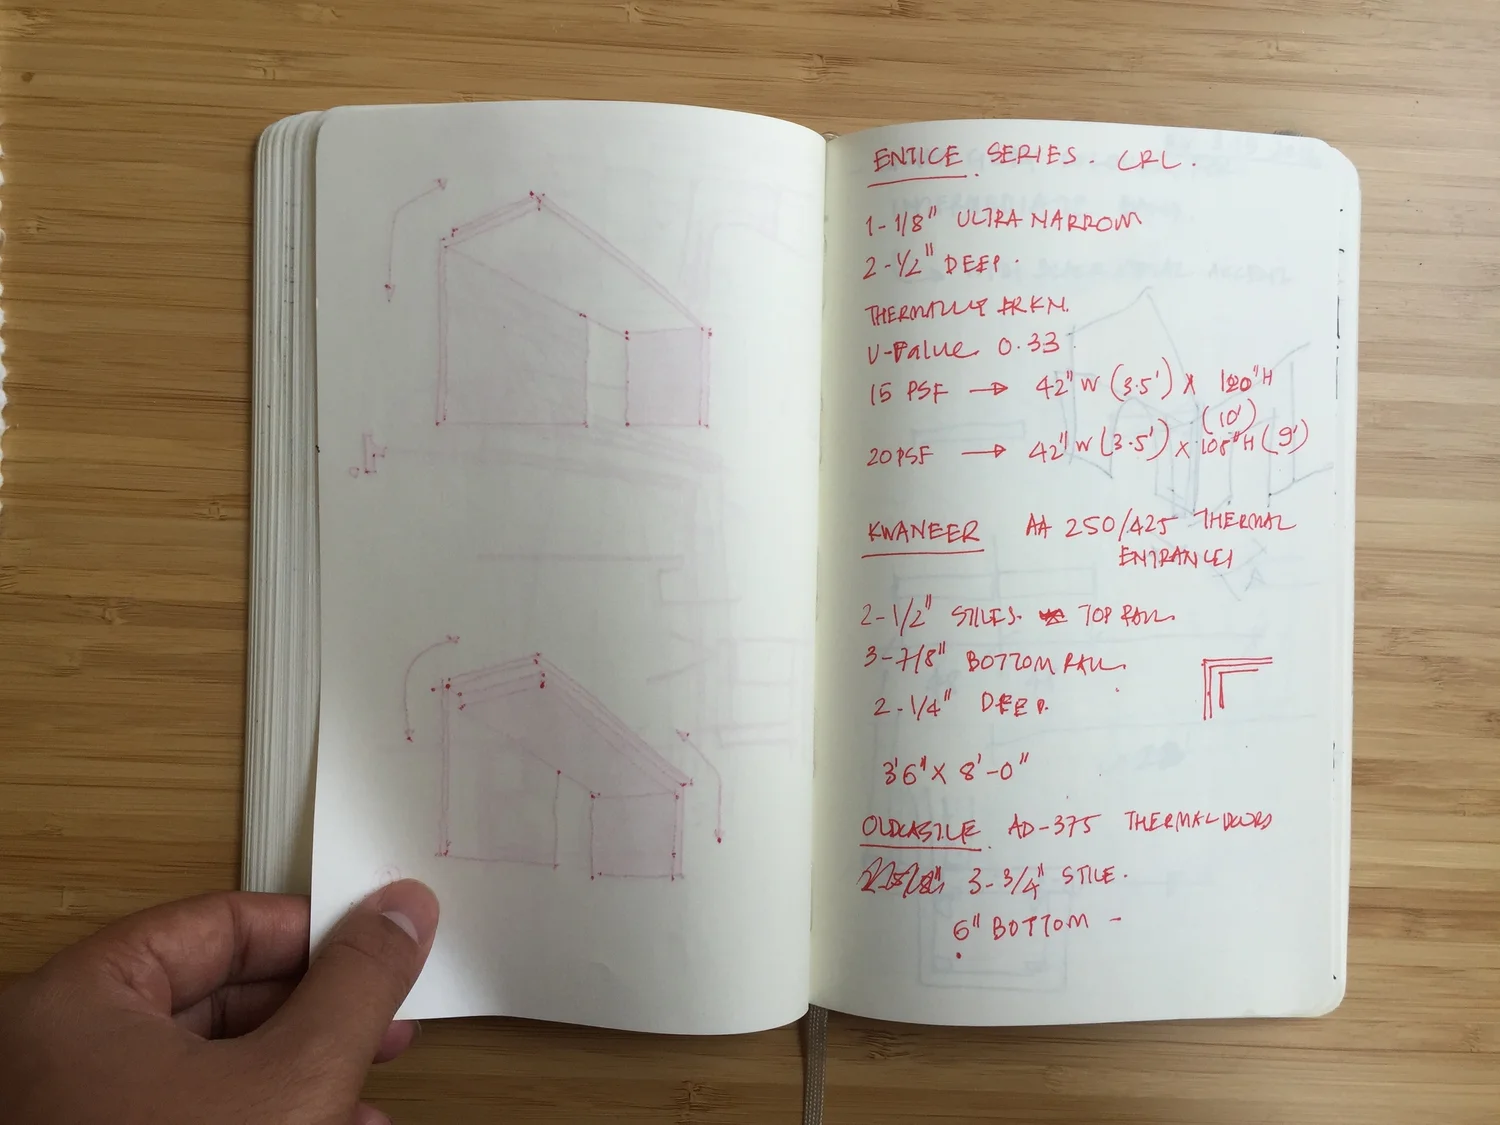 ENTICE SERIES. CRL.
1-1/8" ULTRA NARROW
2-1/2" DEEP.
THERMALLY BRKN.
U-Value 0.33
15 PSF → 42" W (3.5') X 120" H
(10')
20 PSF → 42" W (3.5') X 108" H (9')
KWANEER AA 250/425 THERMAL
ENTRANCES
2-1/2" STILES. TOP RAIL.
3-7/8" BOTTOM RAIL.
2-1/4" DEEP.
3'6" X 8'-0"
OLDCASTLE AD-375 THERMAL DOORS
3-3/4" STILE.
6" BOTTOM -